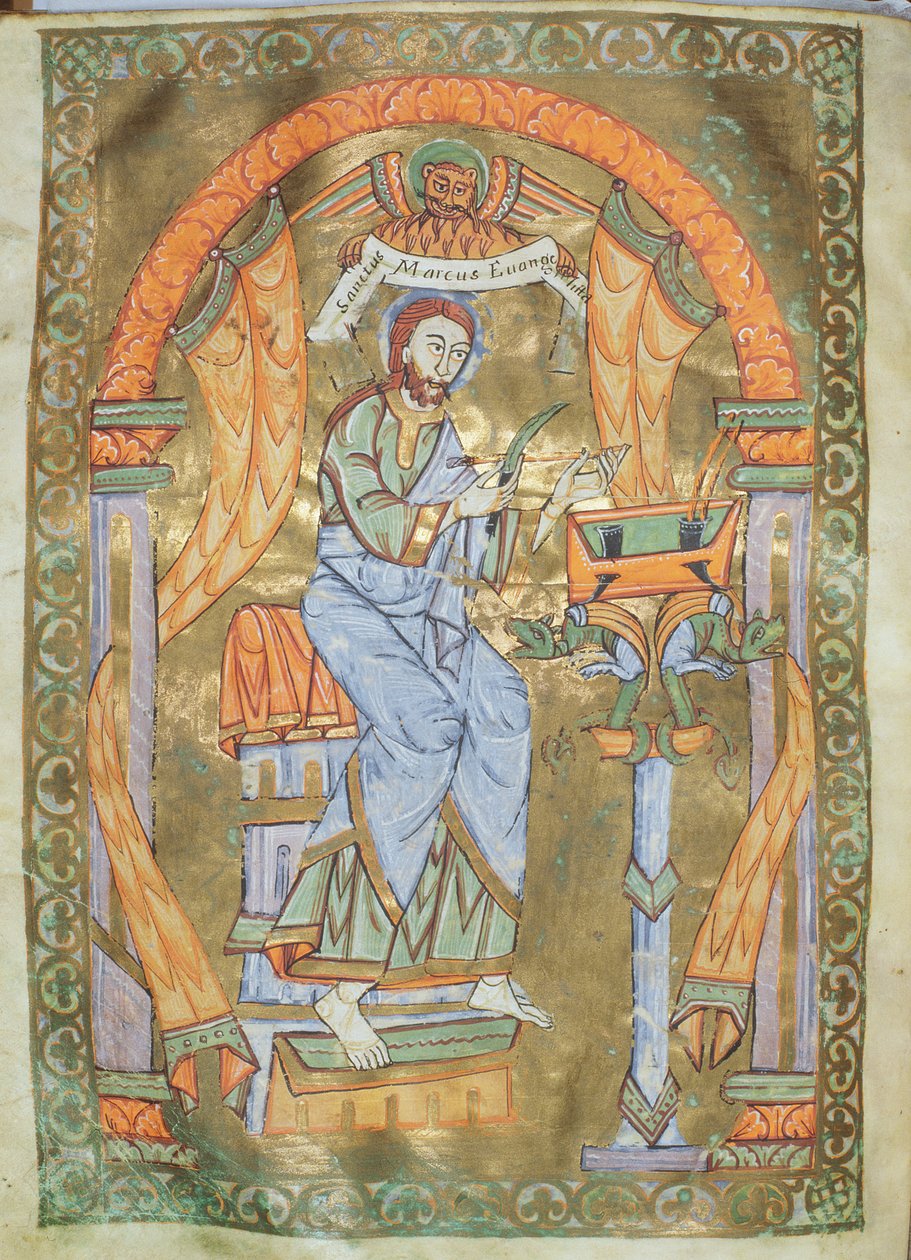 Sanctus Marcus Euangelista